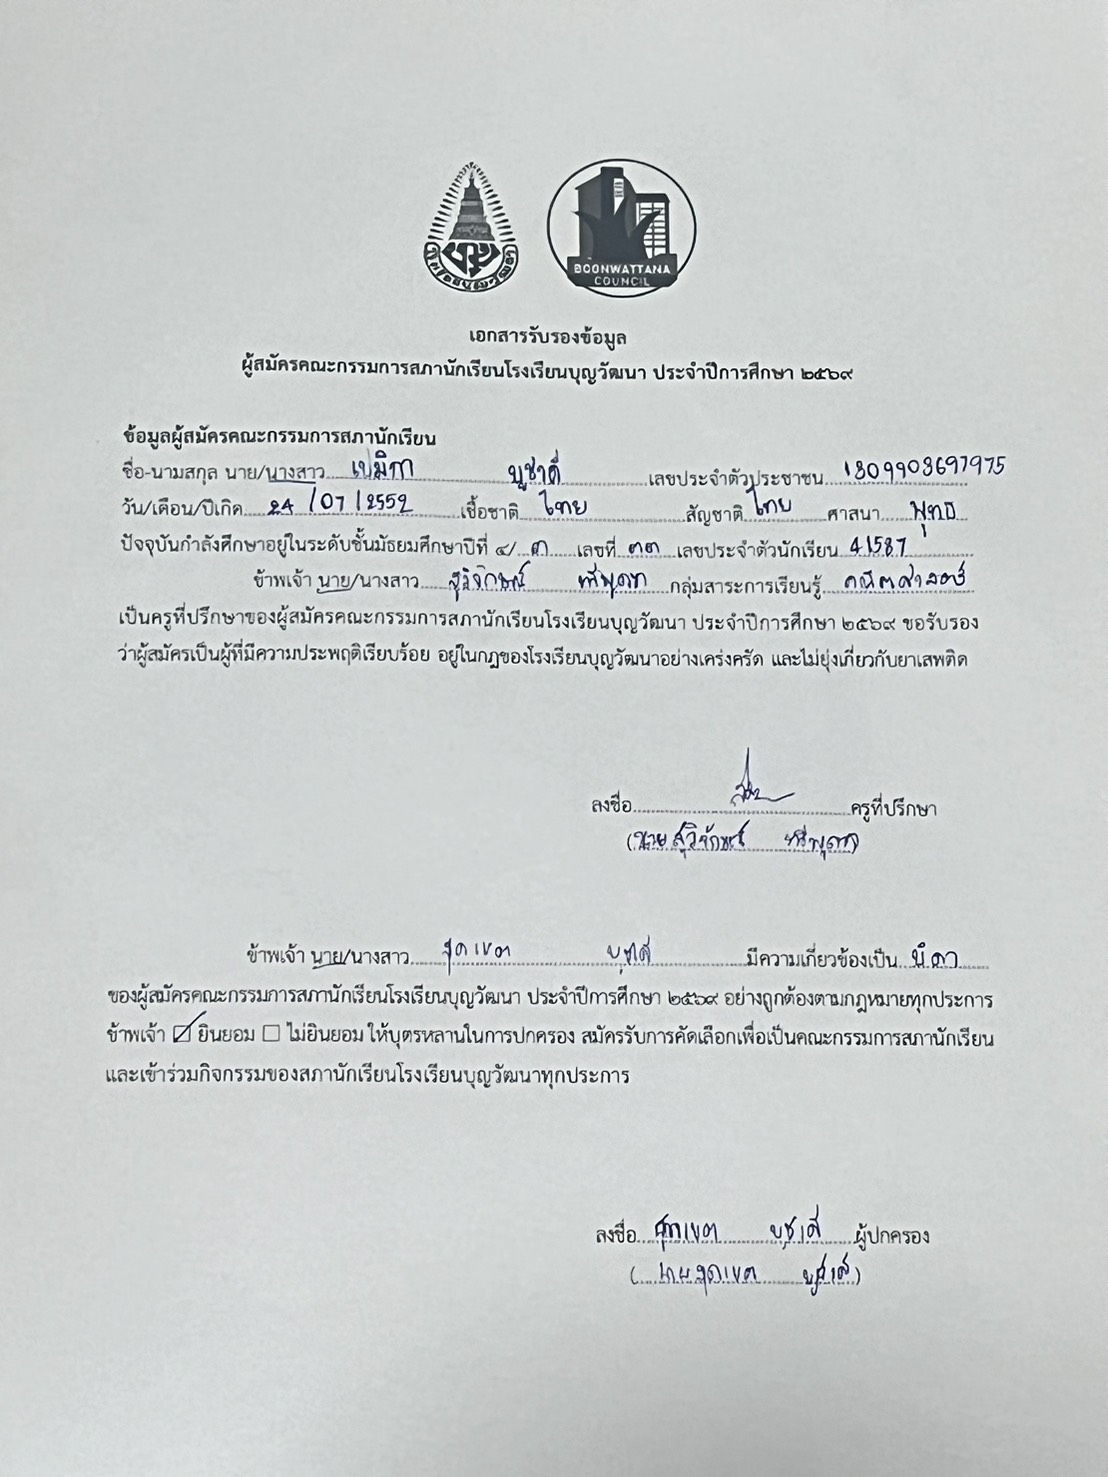 BOONWATTANA
COUNCIL
เอกสารรับรองข้อมูล
ผู้สมัครคณะกรรมการสภานักเรียนโรงเรียนบุญวัฒนา ประจำปีการศึกษา ๒๕๖๙
ข้อมูลผู้สมัครคณะกรรมการสภานักเรียน
ชื่อ-นามสกุล นาย/นางสาว เปมิกา บูชาดี เลขประจำตัวประชาชน 1309903697975
วัน/เดือน/ปีเกิด 24/07/2552 เชื้อชาติ ไทย สัญชาติ ไทย ศาสนา พุทธ
ปัจจุบันกำลังศึกษาอยู่ในระดับชั้นมัธยมศึกษาปีที่ ๔/๓ เลขที่ ๓๓ เลขประจำตัวนักเรียน 41587
ข้าพเจ้า นาย/นางสาว กลุ่มสาระการเรียนรู้ คณิตศาสตร์
เป็นครูที่ปรึกษาของผู้สมัครคณะกรรมการสภานักเรียนโรงเรียนบุญวัฒนา ประจำปีการศึกษา ๒๕๖๙ ขอรับรอง
ว่าผู้สมัครเป็นผู้ที่มีความประพฤติเรียบร้อย อยู่ในกฎของโรงเรียนบุญวัฒนาอย่างเคร่งครัด และไม่ยุ่งเกี่ยวกับยาเสพติด
ลงชื่อ ครูที่ปรึกษา
(นาย )
ข้าพเจ้า นาย/นางสาว สุดเขต บูชาดี มีความเกี่ยวข้องเป็น บิดา
ของผู้สมัครคณะกรรมการสภานักเรียนโรงเรียนบุญวัฒนา ประจำปีการศึกษา ๒๕๖๙ อย่างถูกต้องตามกฎหมายทุกประการ
ข้าพเจ้า ☑ ยินยอม ☐ ไม่ยินยอม ให้บุตรหลานในการปกครอง สมัครรับการคัดเลือกเพื่อเป็นคณะกรรมการสภานักเรียน
และเข้าร่วมกิจกรรมของสภานักเรียนโรงเรียนบุญวัฒนาทุกประการ
ลงชื่อ สุดเขต บูชาดี ผู้ปกครอง
(นายสุดเขต บูชาดี)